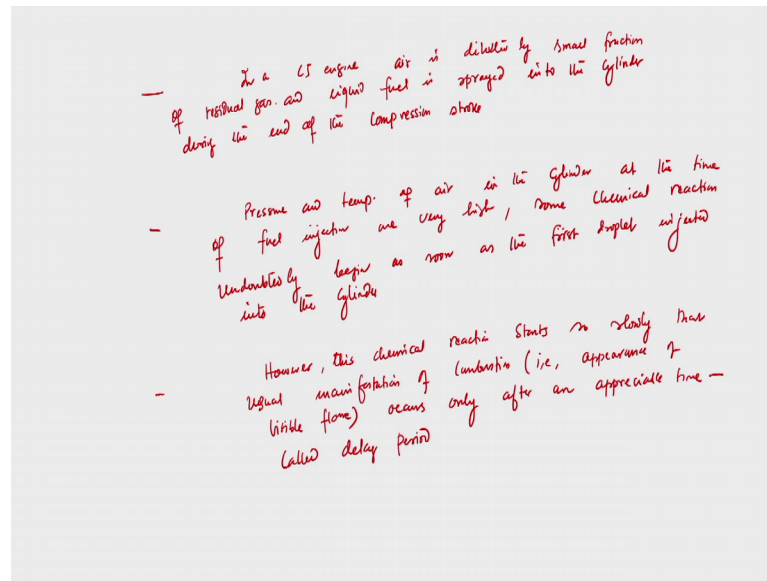 — In a CI engine air is diluted by small fraction
of residual gas. and liquid fuel is sprayed into the cylinder
during the end of the compression stroke
— Pressure and temp. of air in the cylinder at the time
of fuel injection are very high, some chemical reaction
undoubtedly begin as soon as the first droplet injected
into the cylinder
— However, this chemical reaction starts so slowly that
usual manifestation of combustion (i.e, appearance of
visible flame) occurs only after an appreciable time —
called delay period